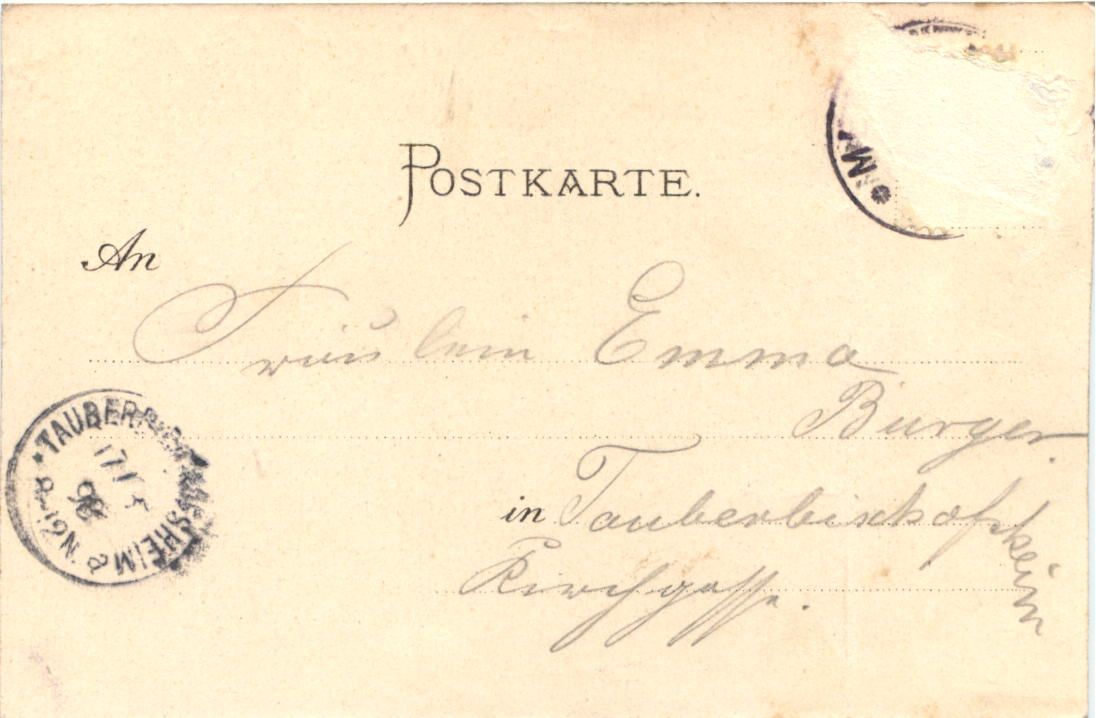 POSTKARTE.
An
Fräulein Emma
Burger
in Tauberbischofsheim
Kirchgasse.
TAUBERBISCHOFSHEIM
17
98
8-12 N
M